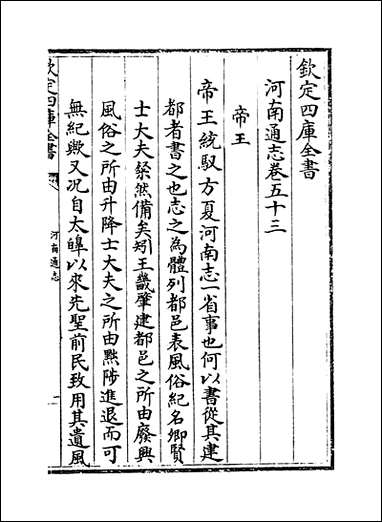 欽定四庫全書
河南通志卷五十三
帝王
帝王統馭方夏河南志一省事也何以書從其建
都者書之也志之為體列都邑表風俗紀名卿賢
士大夫粲然備矣矧王畿肇建都邑之所由廢興
風俗之所由升降士大夫之所由黜陟進退而可
無紀歟又况自太皥以來先聖前民致用其遺風
欽定四庫全書
河南通志
一